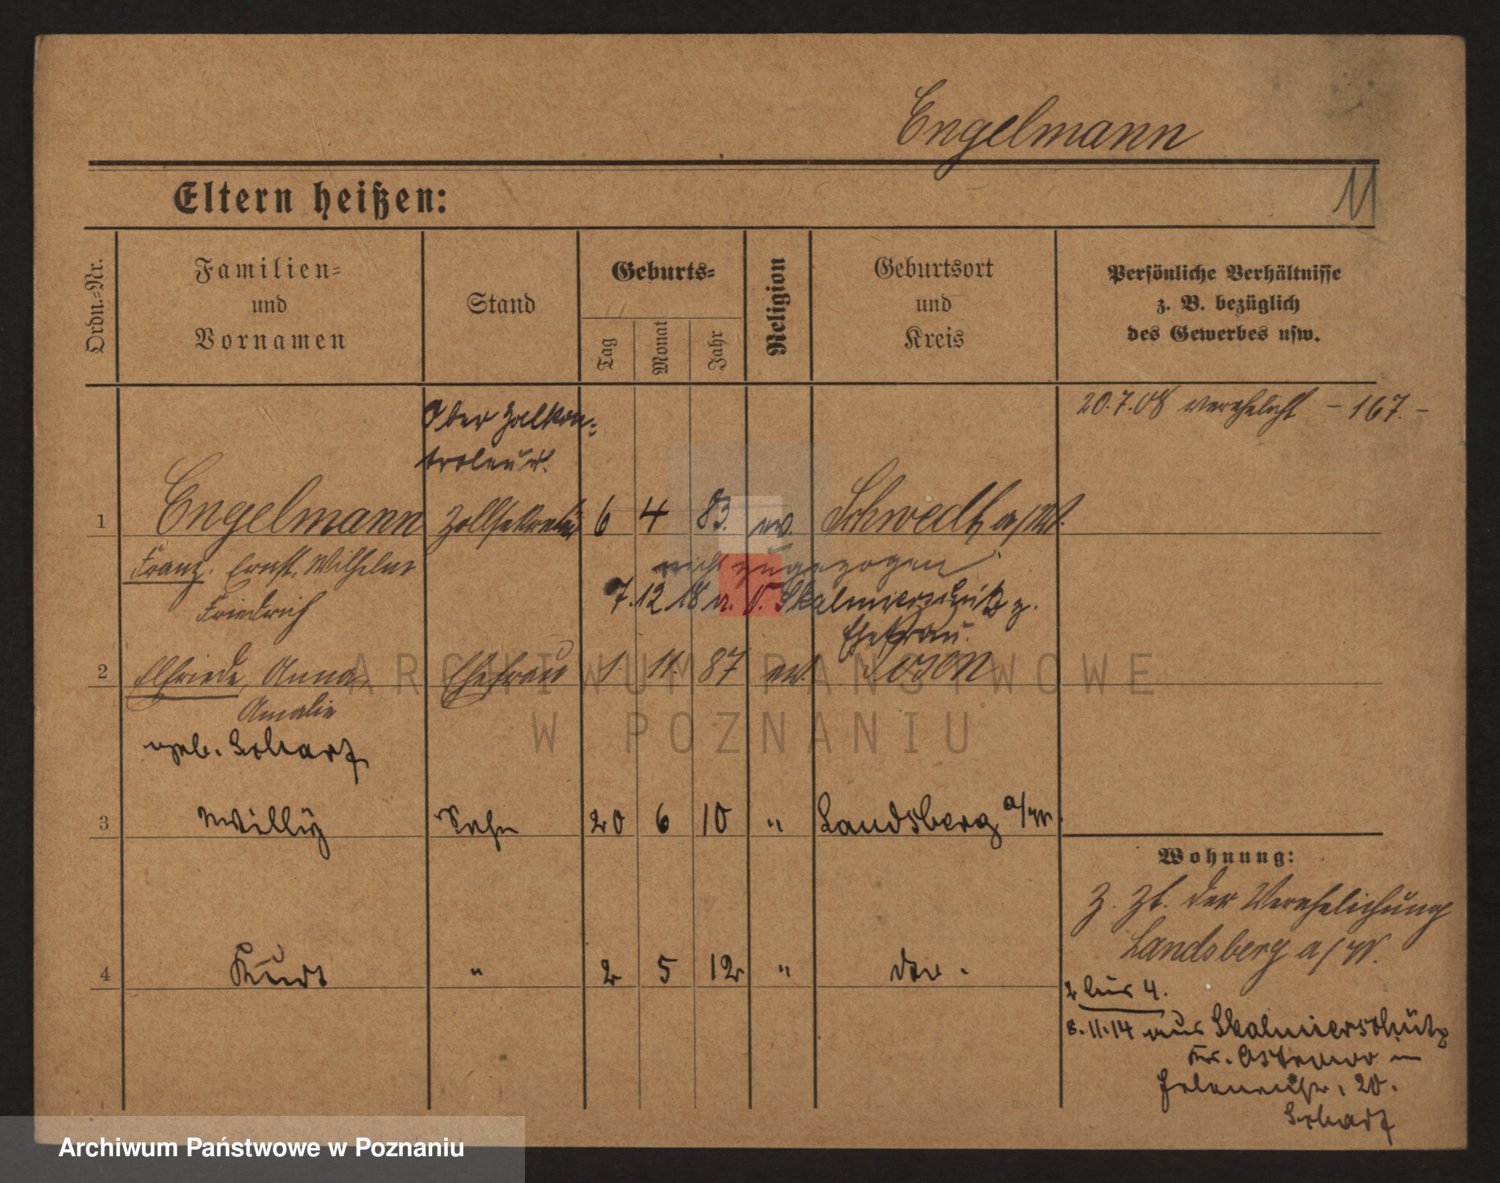 Engelmann
Eltern heißen:
11
Ordn.-Nr.
Familien-
und
Vornamen
Stand
Geburts-
Tag
Monat
Jahr
Religion
Geburtsort
und
Kreis
Persönliche Verhältnisse
z. B. bezüglich
des Gewerbes usw.
20.7.08 verehelicht - 167. -
Ober Zollkon-
troleur.
1 Engelmann Zollsekretär 6 4 83. ev. Schwedt a/O.
Franz, Ernst, Wilhelm
Friedrich
nicht zugezogen
7.12.18 n. Skalmierschütz z.
Ehefrau.
2 Elfriede, Anna, Ehefrau 1. 11. 87 ev. Posen
Amalie
geb. Scharf
3 Willy Sohn 20 6 10 " Landsberg a/W.
Wohnung:
z. Zt. der Verehelichung
Landsberg a/W.
4 Kurt " 2 5 12 " do.
2 bis 4.
8.11.14 aus Skalmierschütz
Kr. Ostrowo in
20.
Scharf
ARCHIWUM PAŃSTWOWE
W POZNANIU
Archiwum Państwowe w Poznaniu